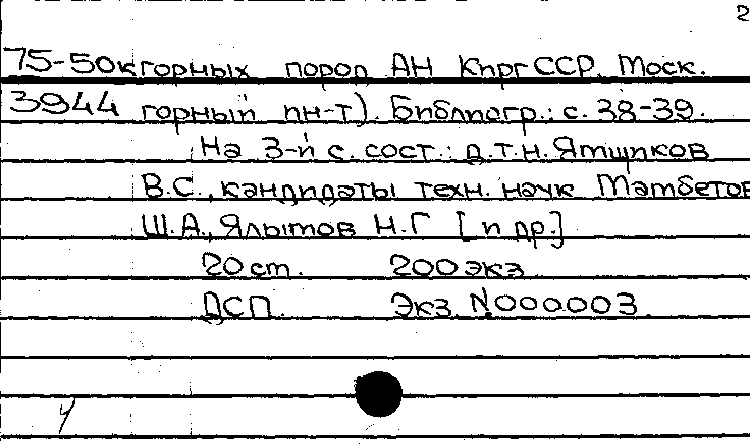 2
75-50к горных пород АН КиргССР. Моск.
3944 горный ин-т). Библиогр.: с. 38-39.
На 3-й с. сост.: д.т.н. Ямщиков
В.С., кандидаты техн. наук Мамбетов
Ш.А., Ялымов Н.Г [и др.]
20 cm. 200 экз
ДСП. Экз. №000003.